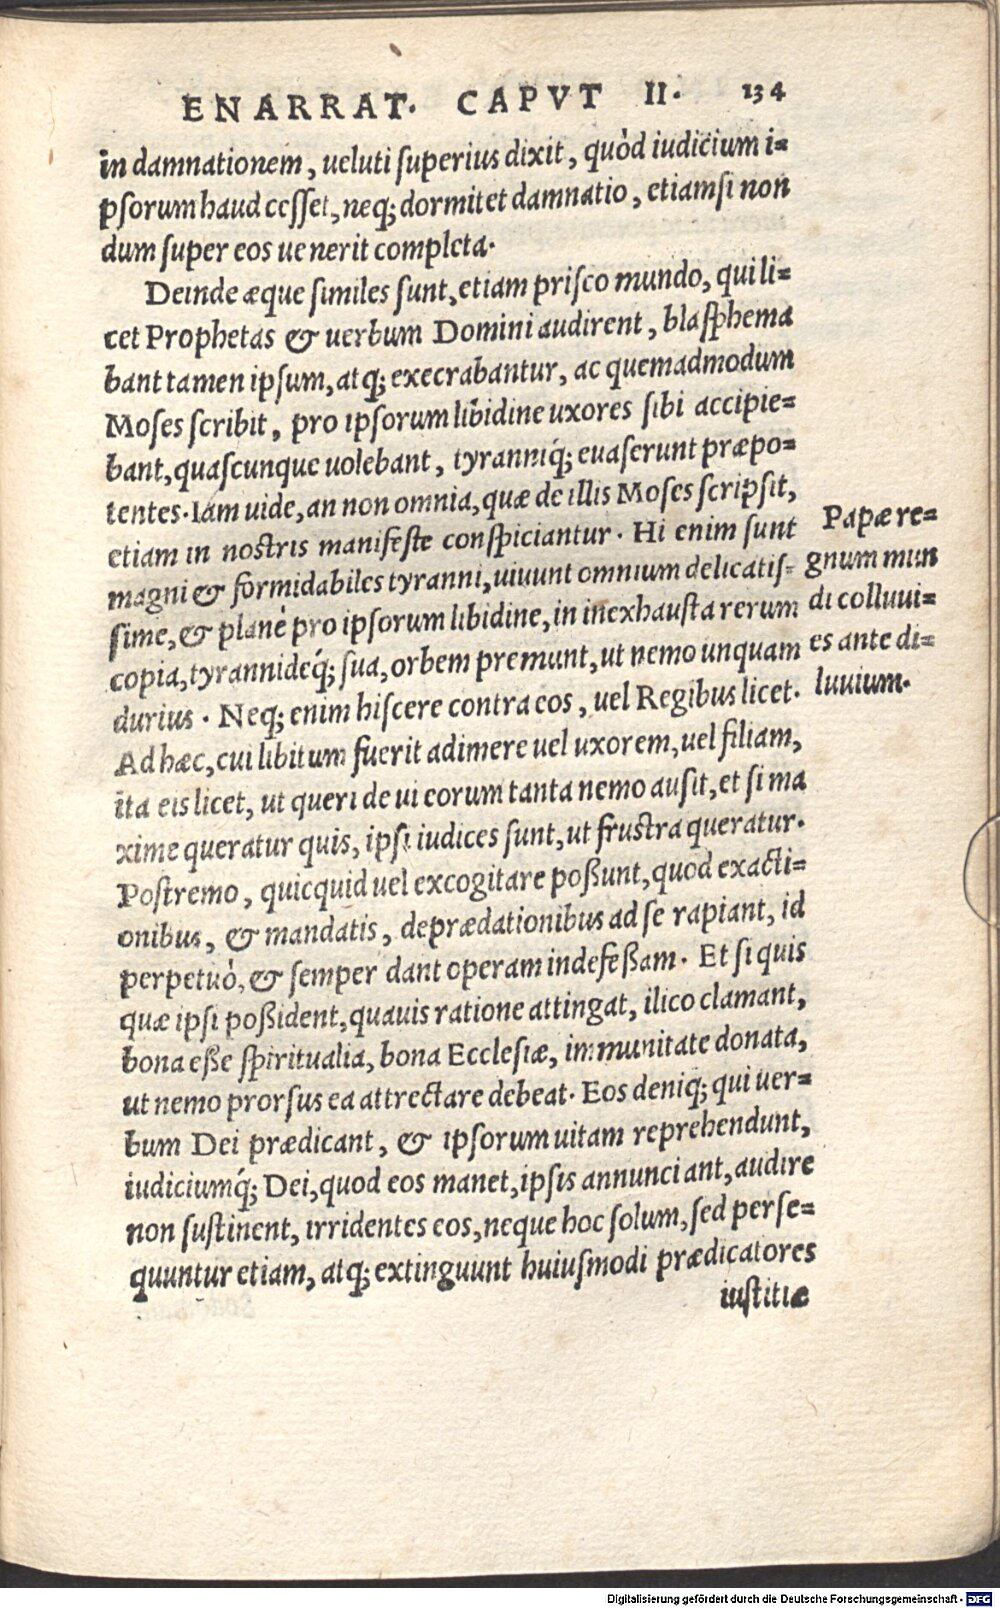 ENARRAT. CAPVT II. 134
in damnationem, ueluti superius dixit, quòd iudicium i=
psorum haud cesset, neq; dormitet damnatio, etiamsi non
dum super eos uenerit completa.
Deinde æque similes sunt, etiam prisco mundo, qui li=
cet Prophetas & uerbum Domini audirent, blasphema
bant tamen ipsum, atq; execrabantur, ac quemadmodum
Moses scribit, pro ipsorum libidine uxores sibi accipie=
bant, quascunque uolebant, tyranniq́; euaserunt præpo=
tentes. Iam uide, an non omnia, quæ de illis Moses scripsit,
etiam in nostris manifeste conspiciantur. Hi enim sunt
magni & formidabiles tyranni, uiuunt omnium delicatis=
sime, & planè pro ipsorum libidine, in inexhausta rerum
copia, tyrannideq́; sua, orbem premunt, ut nemo unquam
durius. Neq; enim hiscere contra eos, uel Regibus licet.
Ad hæc, cui libitum fuerit adimere uel uxorem, uel filiam,
ita eis licet, ut queri de ui eorum tanta nemo ausit, et si ma
xime queratur quis, ipsi iudices sunt, ut frustra queratur.
Postremo, quicquid uel excogitare poßunt, quod exacti=
onibus, & mandatis, deprædationibus ad se rapiant, id
perpetuò, & semper dant operam indefeßam. Et si quis
quæ ipsi poßident, quauis ratione attingat, ilico clamant,
bona eße spiritualia, bona Ecclesiæ, immunitate donata,
ut nemo prorsus ea attrectare debeat. Eos deniq; qui uer=
bum Dei prædicant, & ipsorum uitam reprehendunt,
iudiciumq́; Dei, quod eos manet, ipsis annunciant, audire
non sustinent, irridentes eos, neque hoc solum, sed perse=
quuntur etiam, atq; extinguunt huiusmodi prædicatores
iustitiæ
Papæ re=
gnum mun
di colluui=
es ante di=
luuium.
Digitalisierung gefördert durch die Deutsche Forschungsgemeinschaft - DFG